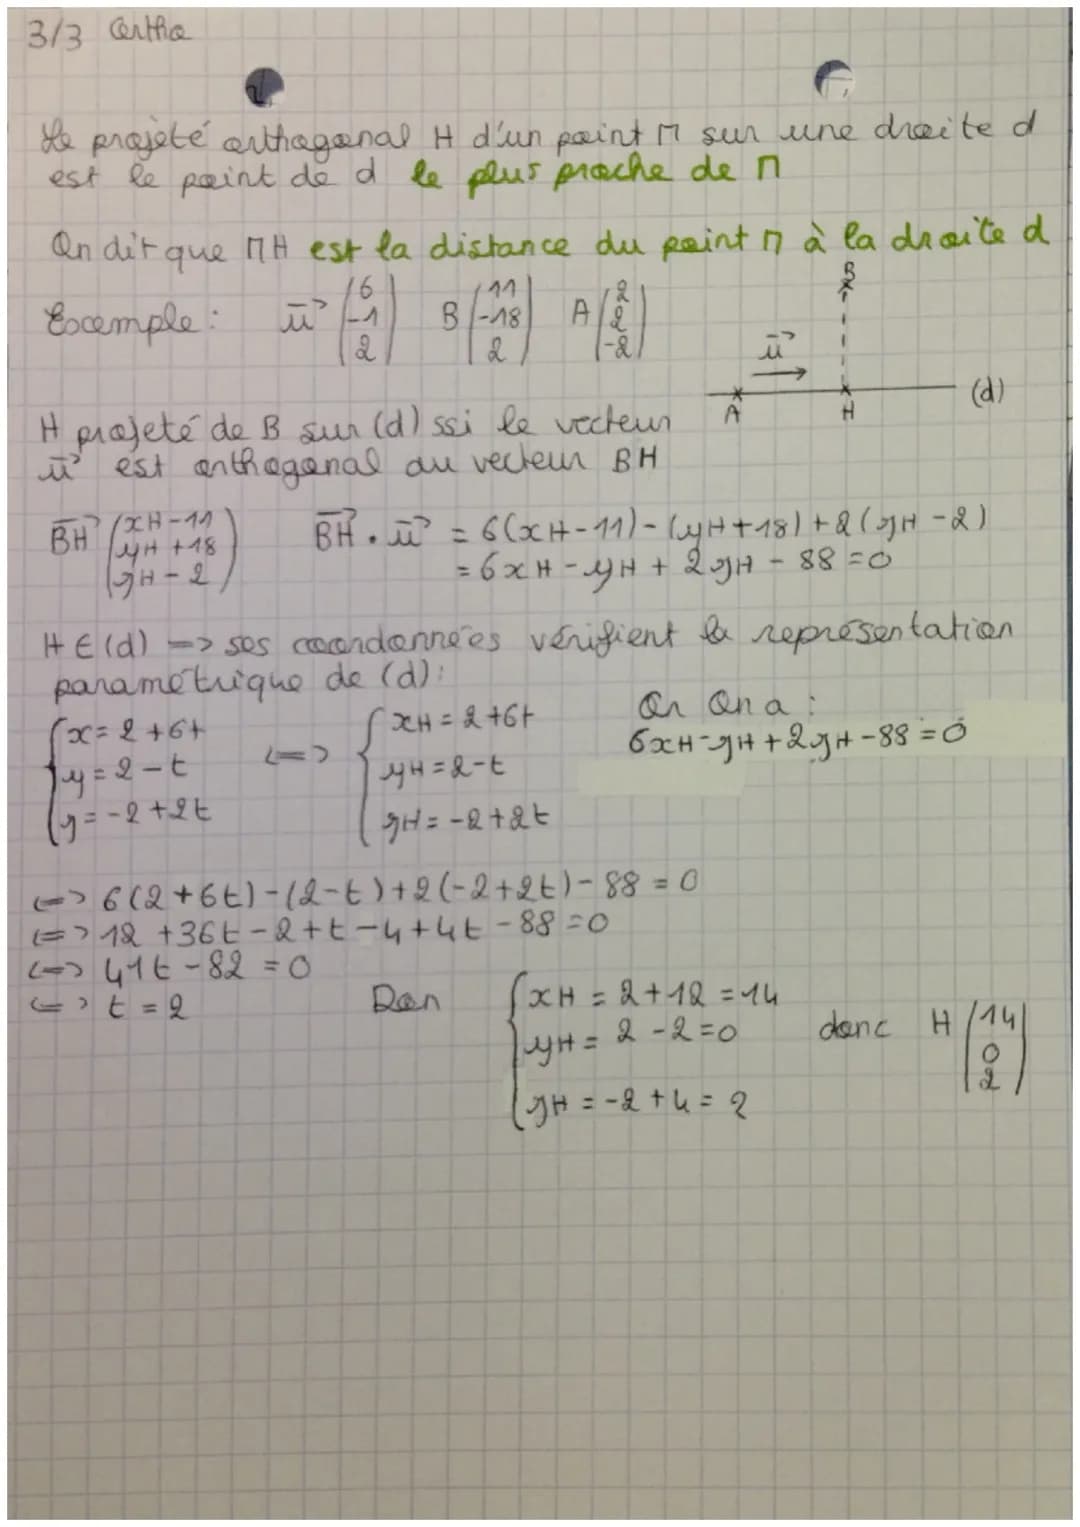 3/3 Ortho
Le projeté orthogonal H d'un point M sur une droite d
est le point de d le plus proche de M
On dit que MH est la distance du point M à la droite d
Exemple : u→ (6 -1 2) B (11 -18 2) A (2 2 -2)
B
u→
A H (d)
H projeté de B sur (d) ssi le vecteur
u→ est orthogonal au vecteur BH
BH→ (xH-11 yH+18 zH-2) BH→ . u→ = 6(xH-11)-(yH+18)+2(zH-2)
= 6xH-yH+2zH-88=0
H∈(d) => ses coordonnées vérifient la représentation
paramétrique de (d):
{x=2+6t <=> {xH=2+6t Or On a :
y=2-t yH=2-t 6xH-yH+2zH-88=0
z=-2+2t zH=-2+2t
<=> 6(2+6t)-(2-t)+2(-2+2t)-88=0
<=> 12+36t-2+t-4+4t-88=0
<=> 41t-82=0
<=> t=2 Don {xH=2+12=14
yH=2-2=0 donc H (14 0 2)
zH=-2+4=2